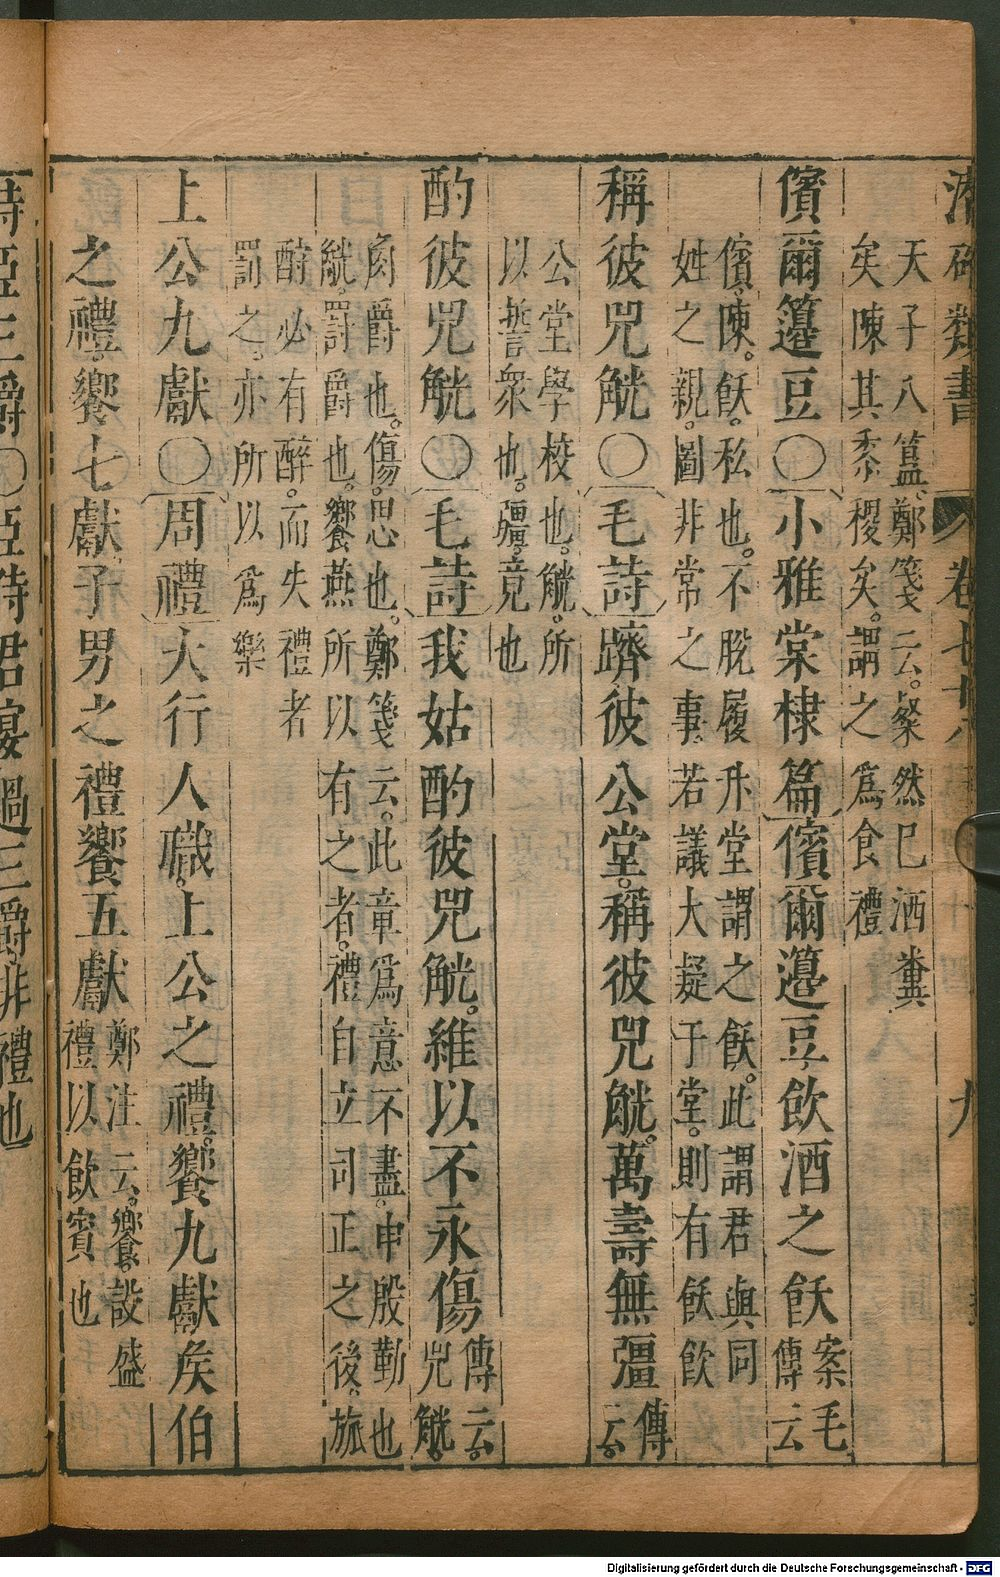 潛確類書 卷七十八 九
天子八簋。鄭箋云。粲然巳洒糞
矣陳其黍稷矣。謂之爲食禮
儐爾籩豆〇小雅棠棣篇儐爾籩豆飲酒之飫
案毛
傳云
儐。陳。飫。私也。不脫履升堂謂之飫。此謂君與同
姓之親。圖非常之事。若議大疑于堂。則有飫飲
稱彼兕觥〇毛詩躋彼公堂。稱彼兕觥。萬壽無彊
傳
云。
公堂學校也。觥。所
以誓衆也。彊。竟也
酌彼兕觥〇毛詩我姑酌彼兕觥。維以不永傷
傳云。
兕觥。
角爵也。傷。思也。鄭箋云。此章爲意不盡。申殷勤也
觥。罰爵也。饗燕所以有之者。禮自立司正之後。旅
酧必有醉。而失禮者
罰之。亦所以爲樂
上公九獻〇周禮大行人職。上公之禮。饗九獻矦伯
之禮。饗七獻。子男之禮饗五獻
鄭注云。饗。設盛
禮以飲賓也
侍臣三爵〇臣侍君宴過三爵非禮也
Digitalisierung gefördert durch die Deutsche Forschungsgemeinschaft - DFG